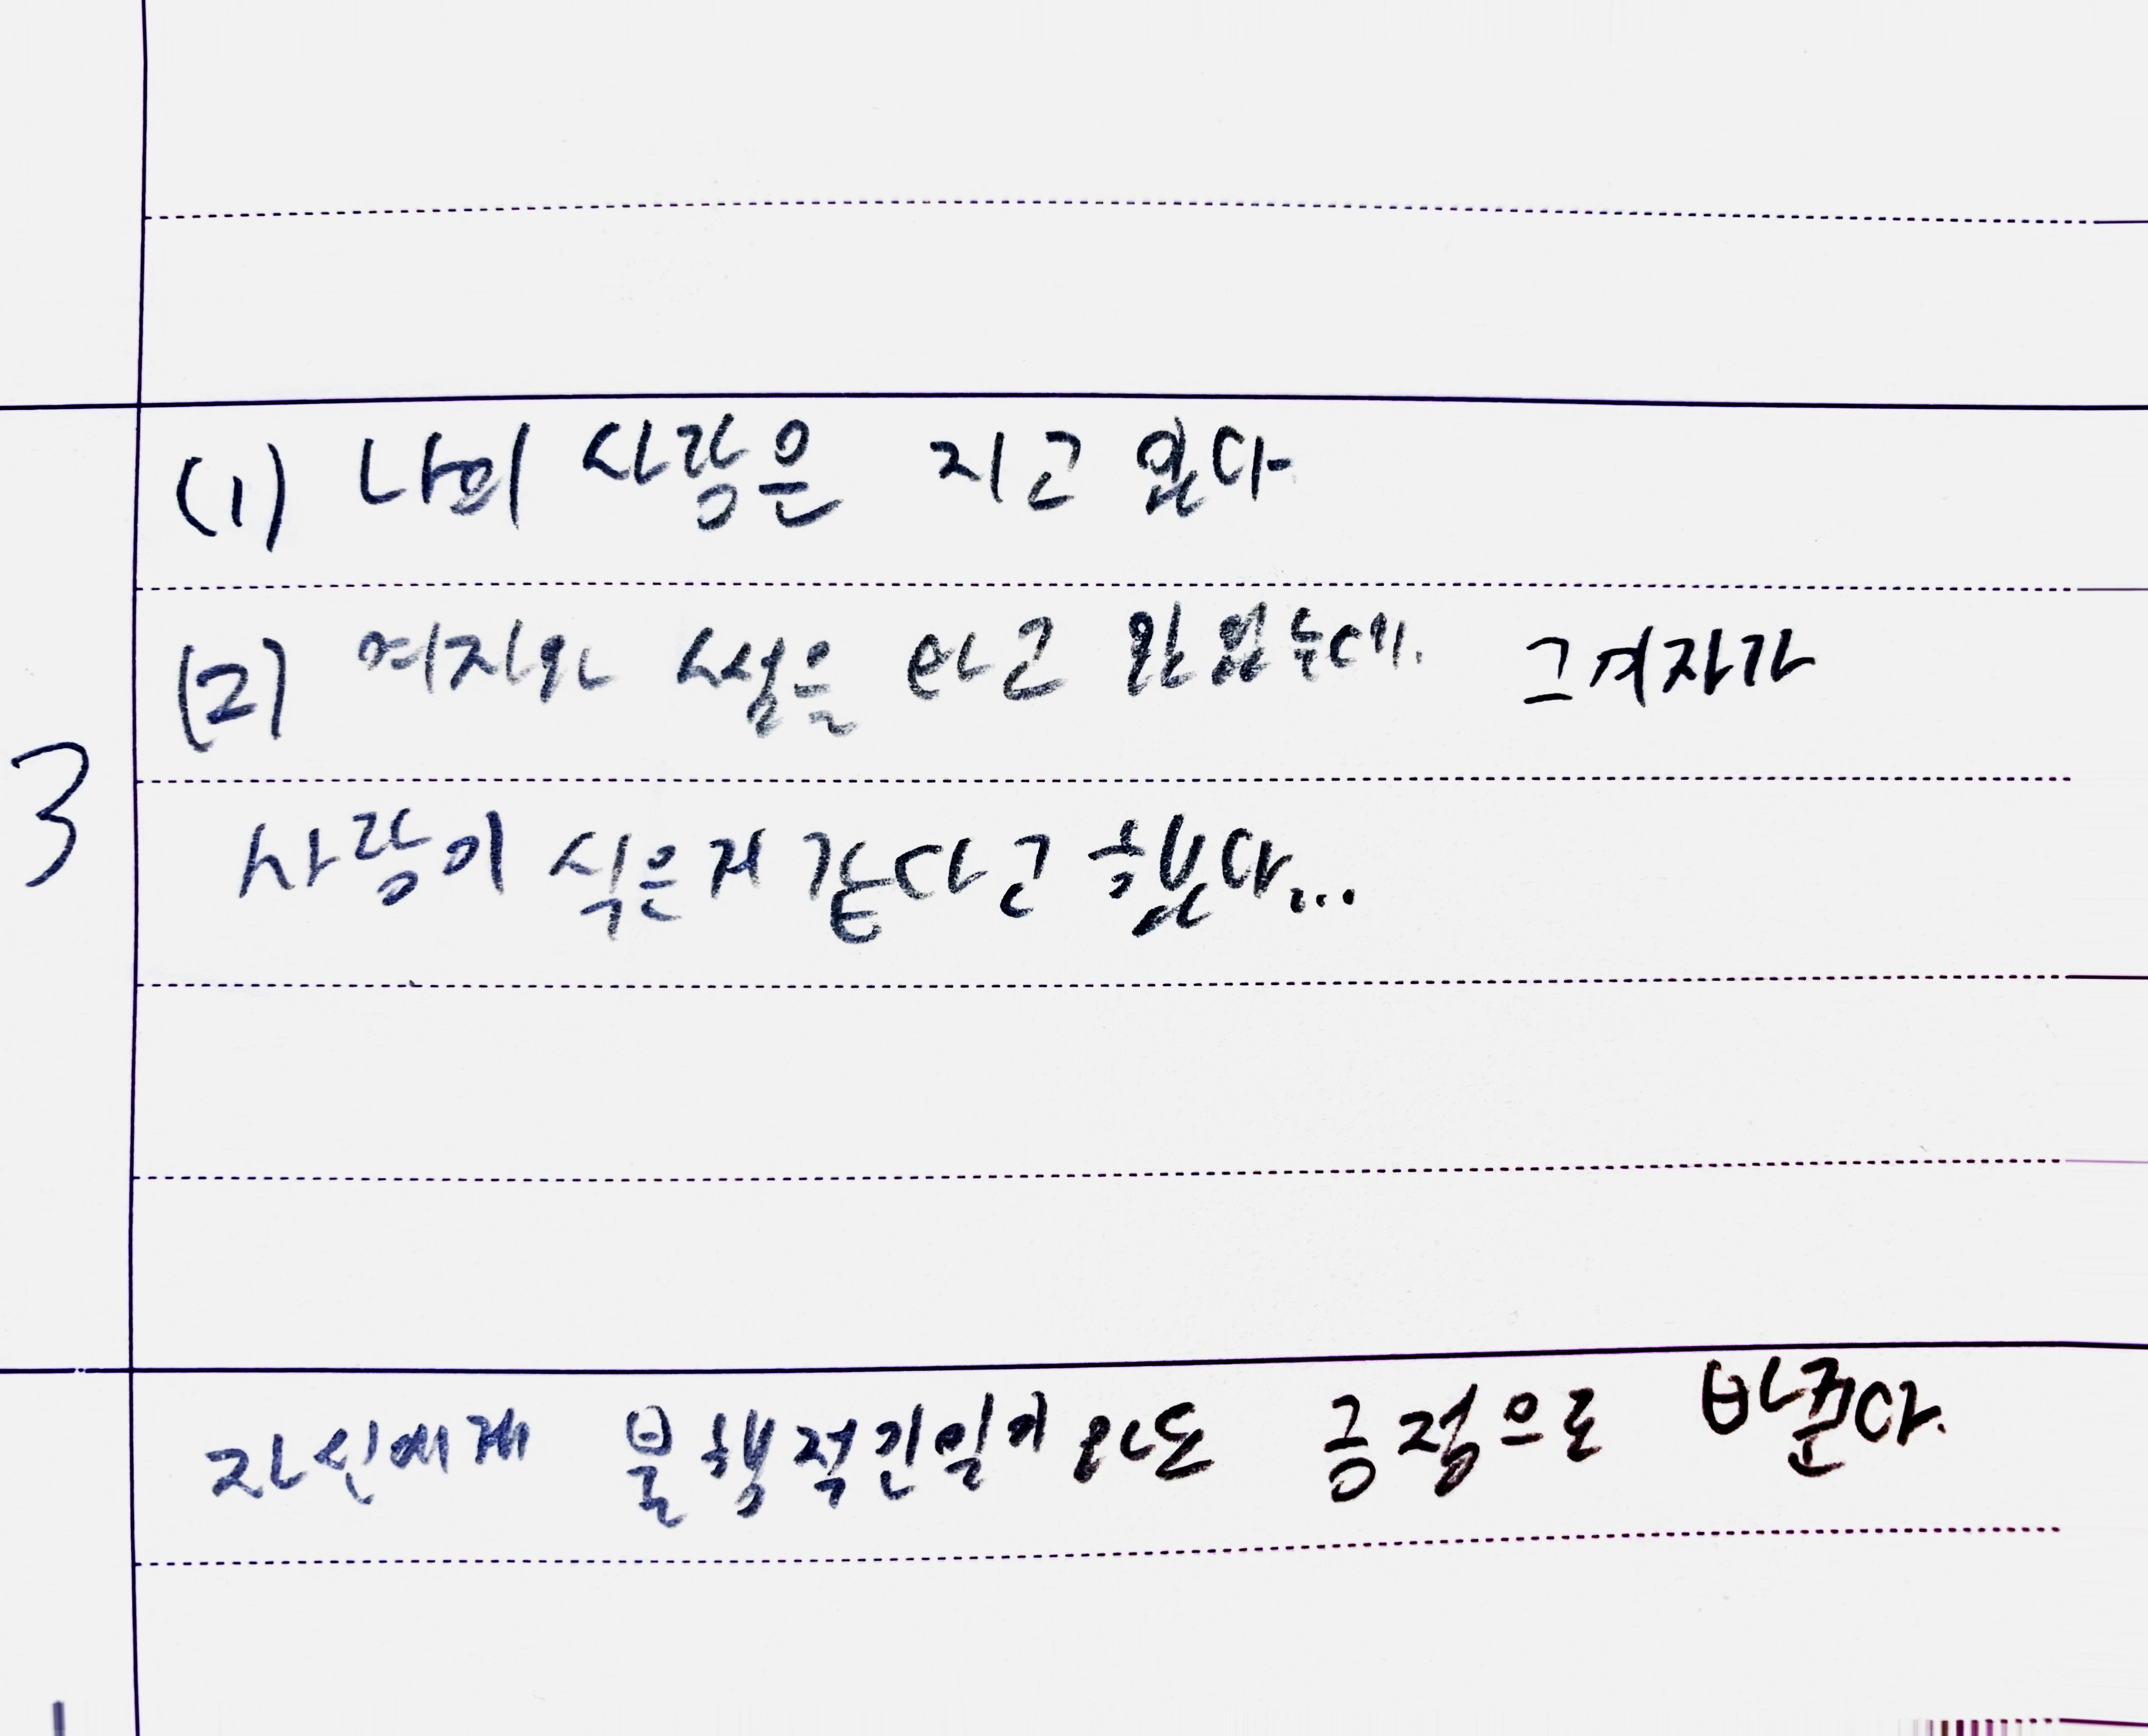 (1) 나의 사랑은 지고 있다
(2) 여자와 썸을 타고 있었는데. 그여자가
3
사랑이 식은거 같다고 했다...
자신에게 불행적긴일이 와도 긍정으로 바꾼다.